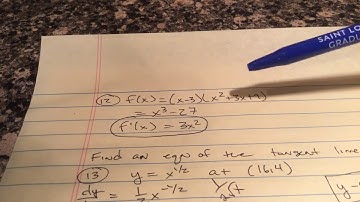 SAINT LO
GRADU
12) f(x) = (x-3)(x²+3x+9)
= x³-27
f'(x) = 3x²
Find an eqn of the tangent line
13) y = x^1/2 at (16,4)
dy = 1 x^-1/2